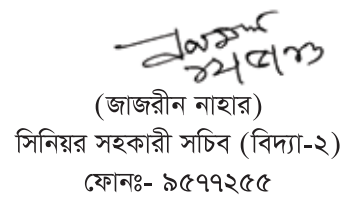 (জাজরীন নাহার)
সিনিয়র সহকারী সচিব (বিদ্যা-২)
ফোনঃ- ৯৫৭৭২৫৫